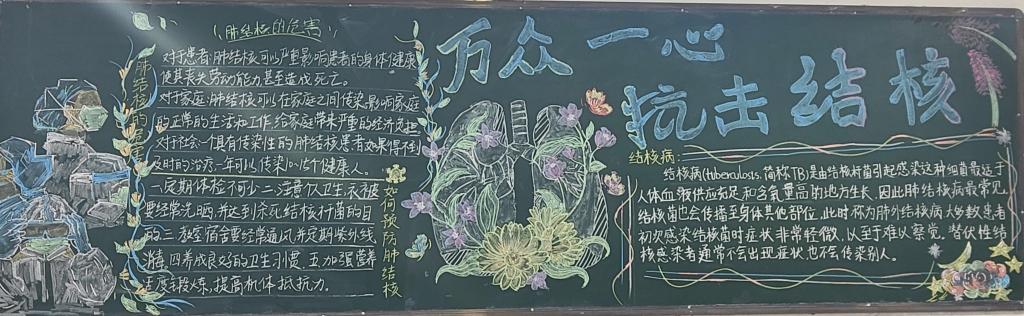 肺结核的危害
肺结核的危害
对于患者:肺结核可以严重影响患者的身体健康
使其丧失劳动能力甚至造成死亡。
对于家庭:肺结核可以在家庭之间传染,影响家庭
的正常的生活和工作,给家庭带来严重的经济负担
对于社会:一个具有传染性的肺结核患者如果得不到
及时的治疗,一年可以传染10~15个健康人。
一.定期体检不可少 二.注意个人卫生,衣被
要经常洗晒,并达到杀死结核杆菌的目
的 三.教室宿舍要经常通风并定期紫外线
消 四.养成良好的卫生习惯 五.加强营养
适度锻炼,提高机体抵抗力。
如何预防肺结核
万众一心
抗击结核
结核病:
结核病(tuberculosis,简称TB)是由结核杆菌引起感染这种细菌最适于
人体血液供应充足和含氧量高的地方生长,因此肺结核病最常见
结核菌也会传播至身体其他部位,此时称为肺外结核病大多数患者
初次感染结核菌时症状非常轻微,以至于难以察觉。潜伏性结
核感染者通常不会出现症状,也不会传染别人。